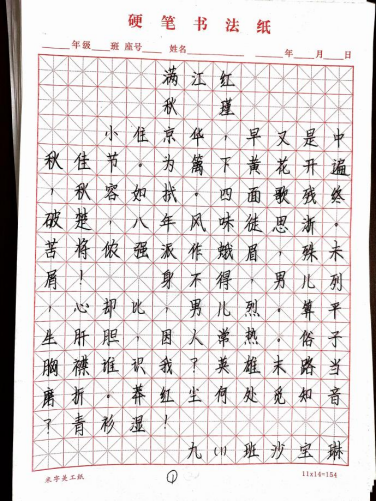 硬笔书法纸
年级 班 座号 姓名 年 月 日
满江红
秋瑾
小住京华，早又是中
秋佳节。为篱下黄花开遍
，秋容如拭。四面歌残终
破楚，八年风味徒思浙。
苦将侬强派作蛾眉，殊未
屑！ 身不得，男儿列
，心却比，男儿烈。算平
生肝胆，因人常热。俗子
胸襟谁识我？英雄末路当
磨折。莽红尘何处觅知音
？青衫湿！
九（1）班沙宝琳
米字美工纸 ① 11x14=154